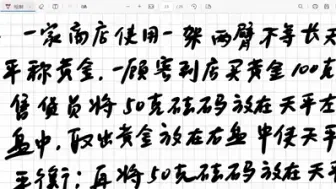 一家商店使用一架两臂不等长天
平称黄金.一顾客到店买黄金100克
售货员将50克砝码放在天平左
盘中,取出黄金放在右盘中使天平
平衡;再将50克砝码放在天平